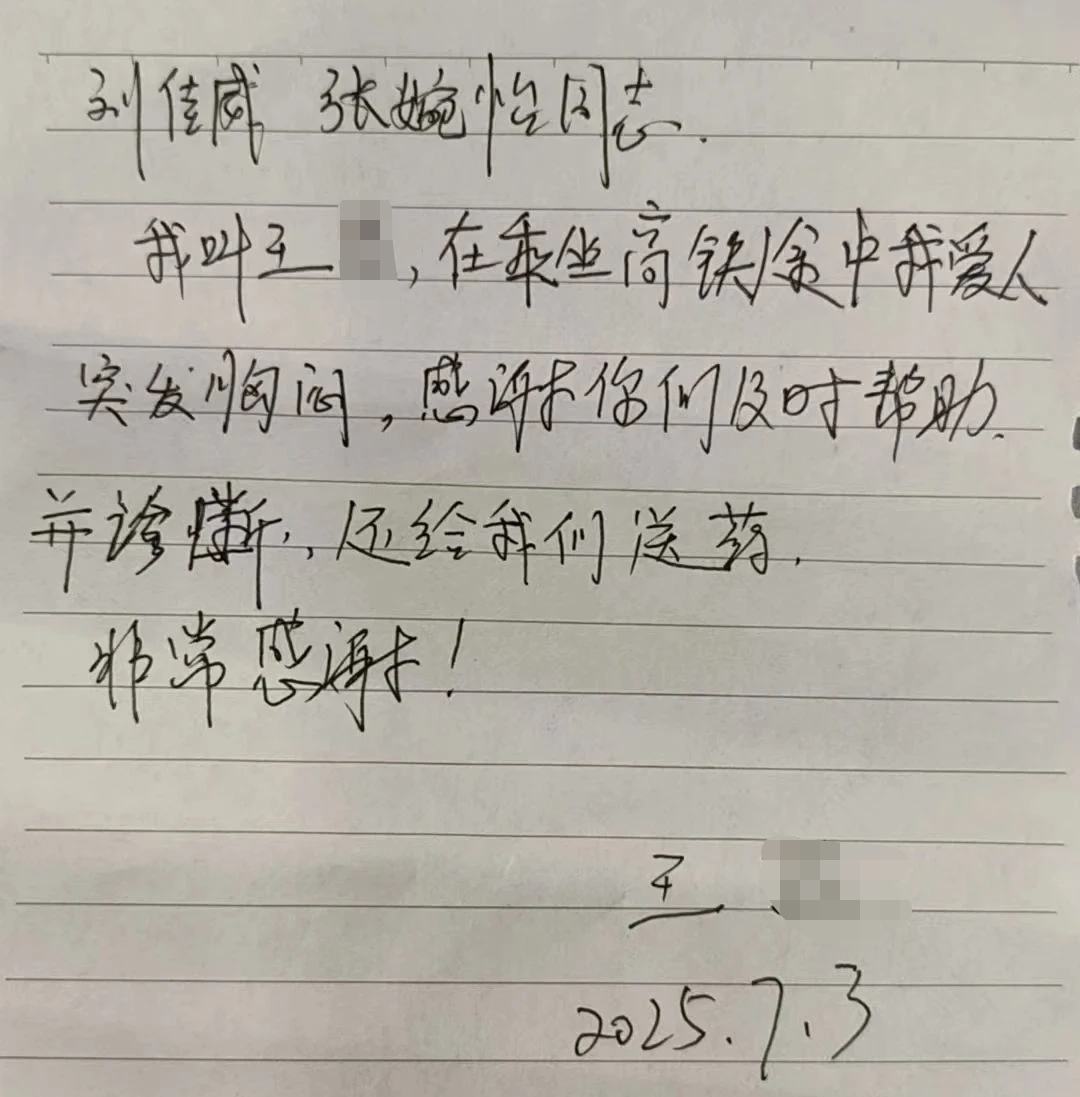 刘佳威 张婉怡同志.
我叫王,在乘坐高铁途中我爱人
突发胸闷,感谢你们及时帮助.
并诊断,还给我们送药.
非常感谢!
王
2025.7.3